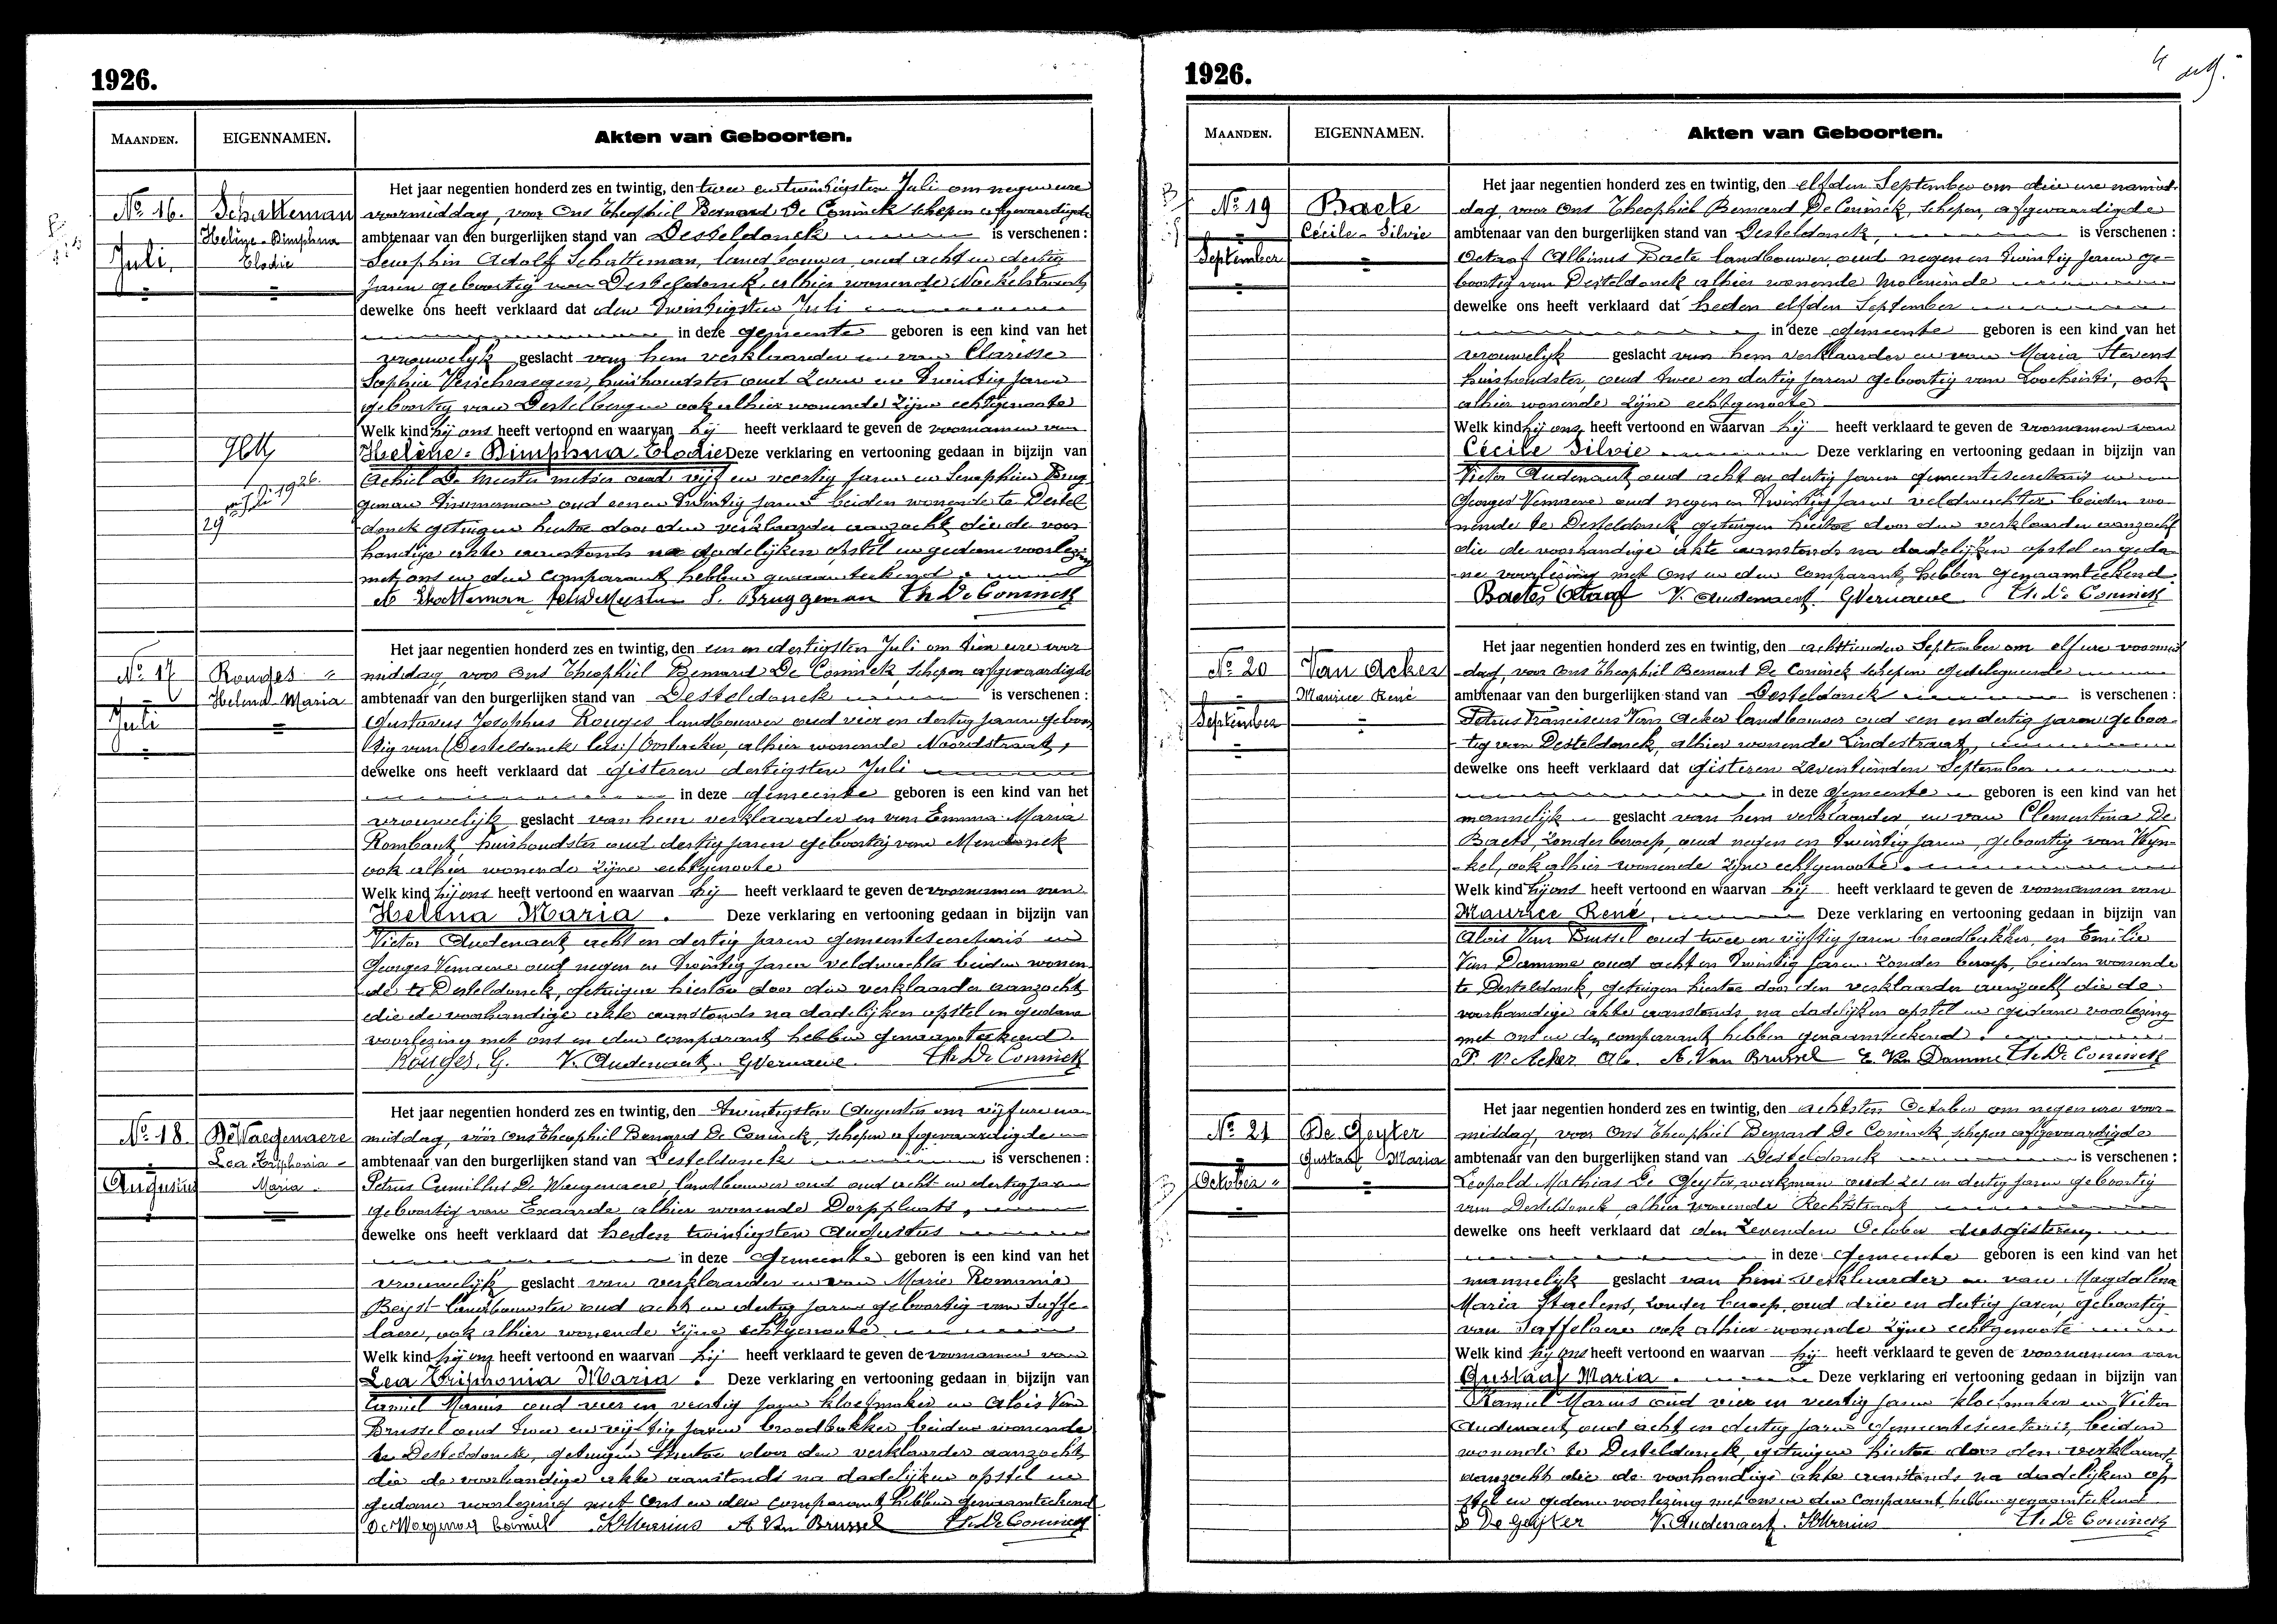 1926.
MAANDEN.
EIGENNAMEN.
Akten van Geboorten.
No. 16.
Juli.
Schatteman
Helène-Dimphna
Elodie
Het jaar negentien honderd zes en twintig, den twee en twintigsten Juli om negen ure
voormiddag, voor Ons Theophiel Bernard De Coninck schepen afgevaardigde
ambtenaar van den burgerlijken stand van Desteldonck is verschenen :
Seraphin Adolf Schatteman, landbouwer, oud acht en dertig
jaren geboortig van Desteldonck, alhier wonende
dewelke ons heeft verklaard dat den twintigsten Juli
in deze gemeente geboren is een kind van het
vrouwelijk geslacht van hem verklaarder en van Clarisse
Sophie Verschraegen, huishoudster oud zeven en twintig jaren
geboortig van Destelbergen ook alhier wonende zijne echtgenoote
Welk kind hij ons heeft vertoond en waarvan hij heeft verklaard te geven de voornamen van
Helène-Dimphna-Elodie Deze verklaring en vertooning gedaan in bijzijn van
Achiel De Meester metser oud vijf en veertig jaren en Seraphien Brug
geman timmerman oud eenen twintig jaren beiden wonende te Destel
donck getuigen hiertoe door den verklaarder aanzocht die de voor
handige akte aanstonds na dadelijken opstel en gedane voorlezing
met ons en den comparant hebben genaamteekend.
Schatteman De Meester S. Bruggeman Th De Coninck
29 Juli 1926.
No. 17
Juli
Rouges
Helena Maria
Het jaar negentien honderd zes en twintig, den een en dertigsten Juli om tien ure voor
middag, voor Ons Theophiel Bernard De Coninck, schepen afgevaardigde
ambtenaar van den burgerlijken stand van Desteldonck is verschenen :
Gustavus Josephus Rouges landbouwer oud vier en dertig jaren geboor
tig van (Desteldonck lees:) Oostacker, alhier wonende Noordstraat,
dewelke ons heeft verklaard dat gisteren dertigsten Juli
in deze gemeente geboren is een kind van het
vrouwelijk geslacht van hem verklaarder en van Emma Maria
Rombaut, huishoudster oud dertig jaren geboortig van Mendonck
ook alhier wonende zijne echtgenoote
Welk kind hij ons heeft vertoond en waarvan hij heeft verklaard te geven de voornamen van
Helena Maria. Deze verklaring en vertooning gedaan in bijzijn van
Victor Audenaert acht en dertig jaren gemeentesecretaris en
Georges Vernaeve oud negen en twintig jaren veldwachter beiden wonen
de te Desteldonck, getuigen hiertoe door den verklaarder aanzocht
die de voorhandige akte aanstonds na dadelijken opstel en gedane
voorlezing met ons en den comparant hebben genaamteekend.
Rouges. G. V. Audenaert. GVernaeve. Th De Coninck
No. 18
Augustus
De Waegenaere
Lea Triphonia
Maria.
Het jaar negentien honderd zes en twintig, den twintigsten Augustus om vijf ure na
middag, voor Ons Theophiel Bernard De Coninck, schepen afgevaardigde
ambtenaar van den burgerlijken stand van Desteldonck is verschenen :
Petrus Camillus De Waegenaere, landbouwer oud oud acht en dertig jaren
geboortig van Exaarde alhier wonende Dorpplaats,
dewelke ons heeft verklaard dat heden twintigsten Augustus
in deze Gemeente geboren is een kind van het
vrouwelijk geslacht van verklaarder en van Marie Romanie
Beyst landbouwster oud acht en dertig jaren geboortig van Saffe-
laere, ook alhier wonende zijne echtgenoote
Welk kind hij ons heeft vertoond en waarvan hij heeft verklaard te geven de voornamen van
Lea Triphonia Maria. Deze verklaring en vertooning gedaan in bijzijn van
Camiel Marius oud vier en veertig jaren kloefmaker en Alois Van
Brussel oud twee en vijftig jaren broodbakker beiden wonende
te Desteldonck, getuigen hiertoe door den verklaarder aanzocht
die de voorhandige akte aanstonds na dadelijken opstel en
gedane voorlezing met ons en den comparant hebben genaamteekend
De Waegenaere Camiel KMarius A Van Brussel Th. De Coninck
1926.
MAANDEN.
EIGENNAMEN.
Akten van Geboorten.
No. 19
September
Baete
Cécile-Silvie
Het jaar negentien honderd zes en twintig, den elfden September om drie ure namid-
dag, voor Ons Theophiel Bernard De Coninck, schepen, afgevaardigde
ambtenaar van den burgerlijken stand van Desteldonck, is verschenen :
Octaaf Albinus Baete landbouwer, oud negen en twintig jaren ge-
boortig van Desteldonck alhier wonende Moleneinde
dewelke ons heeft verklaard dat heden elfden September
in deze gemeente geboren is een kind van het
vrouwelijk geslacht van hem verklaarder en van Maria Stevens
huishoudster, oud twee en dertig jaren geboortig van Loochristi, ook
alhier wonende zijne echtgenoote
Welk kind hij ons heeft vertoond en waarvan hij heeft verklaard te geven de voornamen van
Cécile Silvie Deze verklaring en vertooning gedaan in bijzijn van
Victor Audenaert oud acht en dertig jaren gemeentesecretaris en
Georges Vernaeve oud negen en twintig jaren veldwachter beiden wo-
nende te Desteldonck, getuigen hiertoe door den verklaarder aanzocht
die de voorhandige akte aanstonds na dadelijken opstel en geda-
ne voorlezing met Ons en den Comparant, hebben genaamteekend.
Baete Octaaf V. Audenaert GVernaeve Th. De Coninck
No. 20
September
Van Acker
Maurice René
Het jaar negentien honderd zes en twintig, den achttienden September om elf ure voormid
-dag, voor Ons Theophiel Bernard De Coninck schepen gedelegueerde
ambtenaar van den burgerlijken stand van Desteldonck is verschenen :
Petrus Franciscus Van Acker landbouwer oud een en dertig jaren geboor-
tig van Desteldonck, alhier wonende Lindestraat,
dewelke ons heeft verklaard dat gisteren zeventienden September
in deze Gemeente geboren is een kind van het
mannelijk geslacht van hem verklaarder en van Clementina De
Baets, zonder beroep, oud negen en twintig jaren, geboortig van Wyn-
kel, ook alhier wonende zijne echtgenoote.
Welk kind hij ons heeft vertoond en waarvan hij heeft verklaard te geven de voornamen van
Maurice René, Deze verklaring en vertooning gedaan in bijzijn van
Alois Van Brussel oud twee en vijftig jaren broodbakker, en Emilie
Van Damme oud acht en twintig jaren zonder beroep, beiden wonende
te Desteldonck, getuigen hiertoe door den verklaarder aanzocht die de
voorhandige akte aanstonds na dadelijken opstel en gedane voorlezing
met ons en den comparant hebben genaamteekend.
P. V. Acker A. Van Brussel E. Van Damme Th. De Coninck
No. 21
October
De Geyter
Gustaaf Maria
Het jaar negentien honderd zes en twintig, den achtsten October om negen ure voor-
middag, voor Ons Theophiel Bernard De Coninck, schepen afgevaardigde
ambtenaar van den burgerlijken stand van Desteldonck is verschenen :
Leopold Mathias De Geyter, werkman oud zes en dertig jaren geboortig
van Desteldonck alhier wonende Rechtstraat
dewelke ons heeft verklaard dat den zevenden October dus gisteren
in deze Gemeente geboren is een kind van het
mannelijk geslacht van hem verklaarder en van Magdalena
Maria Staelens, zonder beroep, oud drie en dertig jaren, geboortig
van Saffelaere ook alhier wonende zijne echtgenoote
Welk kind hij ons heeft vertoond en waarvan hij heeft verklaard te geven de voornamen van
Gustaaf Maria. Deze verklaring en vertooning gedaan in bijzijn van
Kamiel Marius oud vier en veertig jaren kloefmaker en Victor
Audenaert, oud acht en dertig jaren Gemeentesecretaris, beiden
wonende te Desteldonck, getuigen hiertoe door den verklaarder
aanzocht die de voorhandige akte aanstonds na dadelijken op-
stel en gedane voorlezing met ons en den Comparant hebben genaamteekend
L De Geyter V. Audenaert. KMarius Th. De Coninck